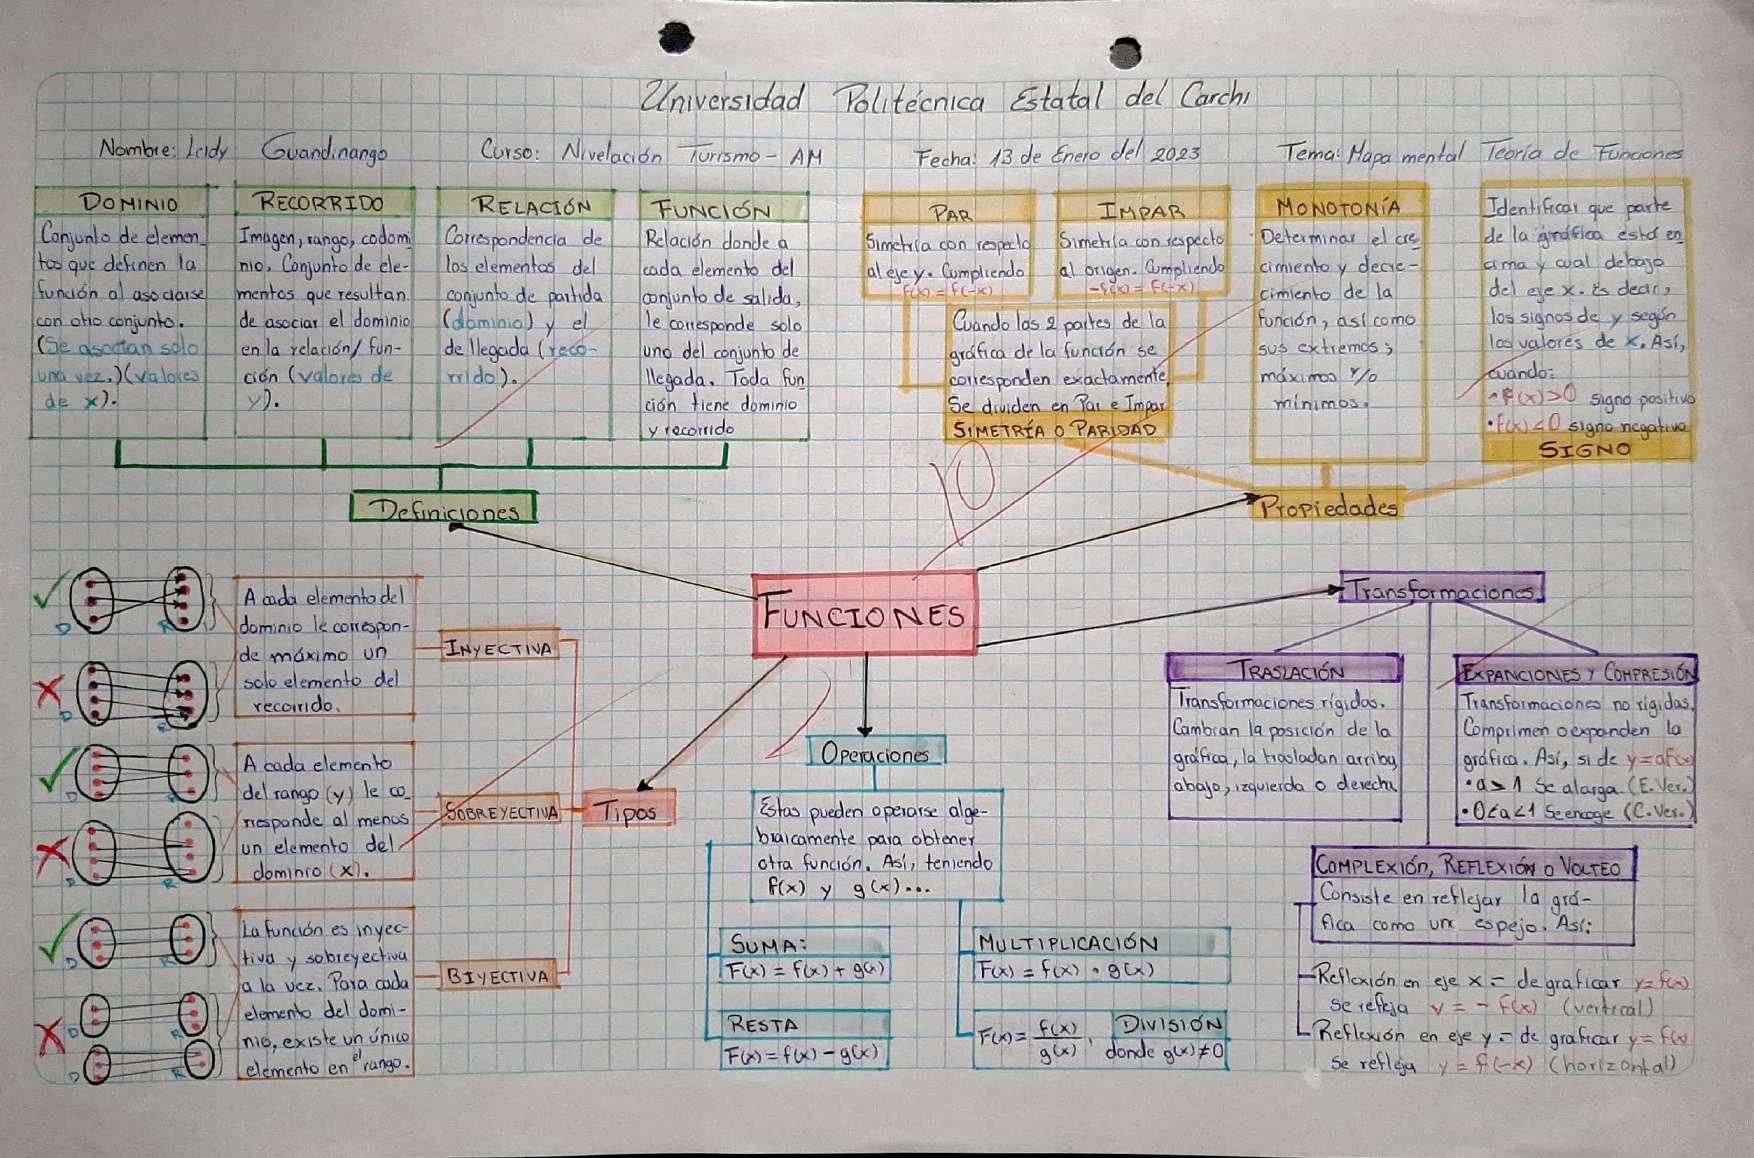 Universidad Politécnica Estatal del Carchi
Nombre: Leidy Guandinango Curso: Nivelación Turismo - AM Fecha: 13 de Enero del 2023 Tema: Mapa mental Teoría de Funciones
DOMINIO
Conjunto de elemen_
tos que definen la
función al asociarse
con otro conjunto.
(Se asocian solo
una vez.)(valores
de x).
RECORRIDO
Imagen, rango, codomi
nio. Conjunto de ele-
mentos que resultan
de asociar el dominio
en la relación/fun-
ción (valores de
y).
RELACIÓN
Correspondencia de
los elementos del
conjunto de partida
(dominio) y el
de llegada (reco-
rrido).
FUNCIÓN
Relación donde a
cada elemento del
conjunto de salida,
le corresponde solo
uno del conjunto de
llegada. Toda fun_
ción tiene dominio
y recorrido
Definiciones
PAR
Simetría con respecto
al eje y. Cumpliendo
f(x) = f(-x)
IMPAR
Simetría con respecto
al origen. Cumpliendo
-f(x) = f(-x)
Cuando las 2 partes de la
gráfica de la función se
corresponden exactamente.
Se dividen en Par e Impar
SIMETRÍA O PARIDAD
MONOTONÍA
Determinar el cre
cimiento y decre-
cimiento de la
función, así como
sus extremos;
máximos y/o
mínimos.
Identificar que parte
de la gráfica está en_
cima y cual debajo
del eje x. Es decir,
los signos de y según
los valores de x. Así,
cuando:
• f(x)>0 signo positivo
• f(x)<0 signo negativo
SIGNO
Propiedades
10
FUNCIONES
D R
D R
A cada elemento del
dominio le correspon-
de máximo un
solo elemento del
recorrido.
INYECTIVA
D R
D R
A cada elemento
del rango (y) le co_
rresponde al menos
un elemento del
dominio (x).
SOBREYECTIVA
Tipos
D R
D R
D R
La función es inyec-
tiva y sobreyectiva
a la vez. Para cada
elemento del domi-
nio, existe un único
elemento en el rango.
BIYECTIVA
Operaciones
Estas pueden operarse alge-
braicamente para obtener
otra función. Así, teniendo
f(x) y g(x)...
SUMA:
F(x) = f(x) + g(x)
RESTA
F(x) = f(x) - g(x)
MULTIPLICACIÓN
F(x) = f(x) • g(x)
DIVISIÓN
F(x) = f(x)/g(x), donde g(x)≠0
Transformaciones
TRASLACIÓN
Transformaciones rígidas.
Cambian la posición de la
gráfica, la trasladan arriba,
abajo, izquierda o derecha
EXPANCIONES Y COMPRESIÓN
Transformaciones no rígidas.
Comprimen o expanden la
gráfica. Así, si de y=af(x)
• a>1 Se alarga (E.Ver.)
• 0<a<1 Se encoge (C.Ver.)
COMPLEXIÓN, REFLEXIÓN O VOLTEO
Consiste en reflejar la grá-
fica como un espejo. Así:
Reflexión en eje x = de graficar y=f(x)
se refleja y = - f(x) (vertical)
Reflexión en eje y = de graficar y=f(x)
se refleja y = f(-x) (horizontal)